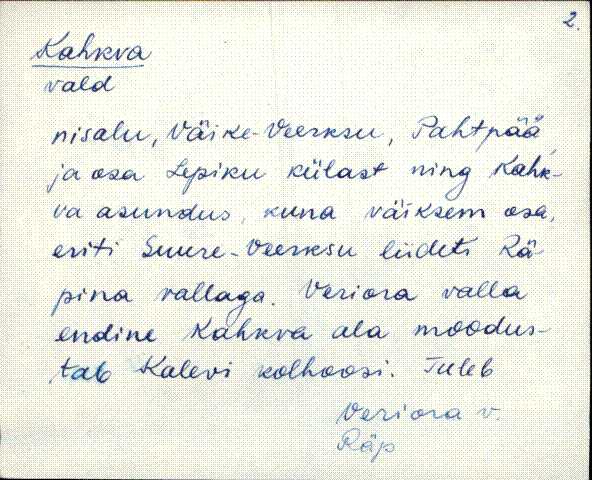 2.
Kahkva
vald
nisalu, Väike-Veerksu, Pahtpää,
ja osa Lepiku külast ning Kahk-
va asundus, kuna väiksem osa,
eriti Suure-Veerksu liideti Rä-
pina vallaga. Veriora valla
endine Kahkva ala moodus-
tab Kalevi kolhoosi. Tuleb
Veriora v.
Räp